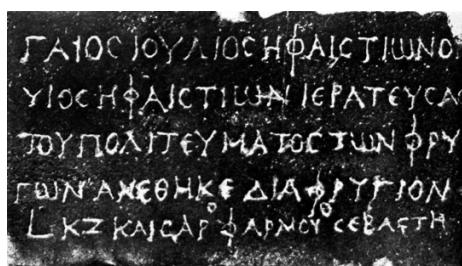 ΓΑΙΟϹ ΙΟΥΛΙΟϹ ΗΦΑΙϹΤΙΩΝΟ
ΥΙΟϹ ΗΦΑΙϹΤΙΩΝ ΙΕΡΑΤΕΥϹΑ
ΤΟΥ ΠΟΛΙΤΕΥΜΑΤΟϹ ΤΩΝ ΦΡΥ
ΓΩΝ ΑΝΕΘΗΚΕ ΔΙΑ ΦΡΥΓΙΟΝ
L ΚΖ ΚΑΙϹΑΡᵒ ΦΑΡΜΟΥᵒ ϹΕΒΑϹΤΗ